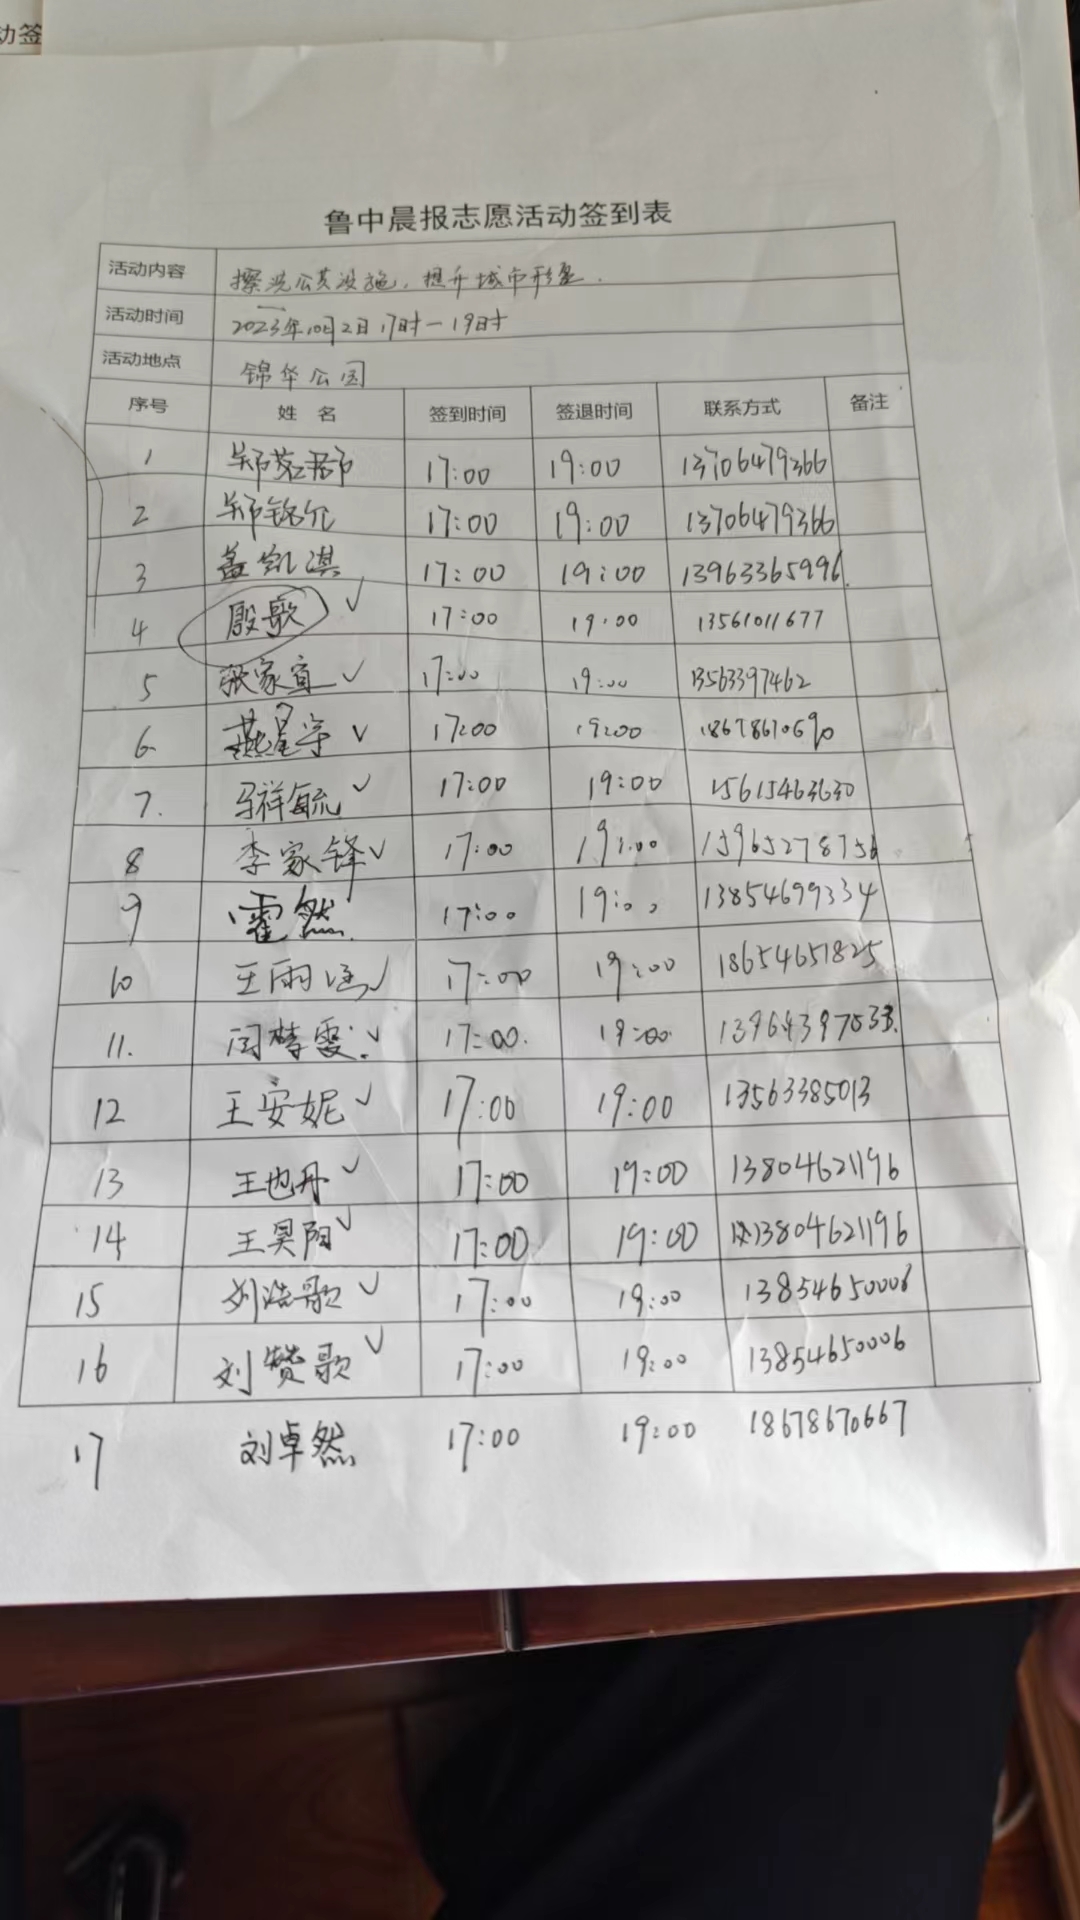 动签
鲁中晨报志愿活动签到表
活动内容 擦洗公共设施，提升城市形象.
活动时间 2023年10月2日17时－19时
活动地点 锦华公园
序号 姓名 签到时间 签退时间 联系方式 备注
1 郑茗郡 17:00 19:00 13706479366
2 郑铭允 17:00 19:00 13706479366
3 盖凯淇 17:00 19:00 13963365996.
4 殷歌 ✓ 17:00 19:00 13561011677
5 张家宜 ✓ 17:00 19:00 13563397462
6 燕星宇 ✓ 17:00 19:00 18678670690
7. 马祥毓 ✓ 17:00 19:00 15615463630
8 李家锋 ✓ 17:00 19:00 15965278756
9 霍然 17:00 19:00 13854699334
10 王雨涵 ✓ 17:00 19:00 18654651825
11. 闫梦雯 ✓ 17:00. 19:00. 13964397533.
12 王安妮 ✓ 17:00 19:00 13563385013
13 王也丹 ✓ 17:00 19:00 13804621196
14 王昊阳 ✓ 17:00 19:00 13804621196
15 刘浩歌 ✓ 17:00 19:00 13854650006
16 刘赞歌 ✓ 17:00 19:00 13854650006
17 刘卓然 17:00 19:00 18678670667